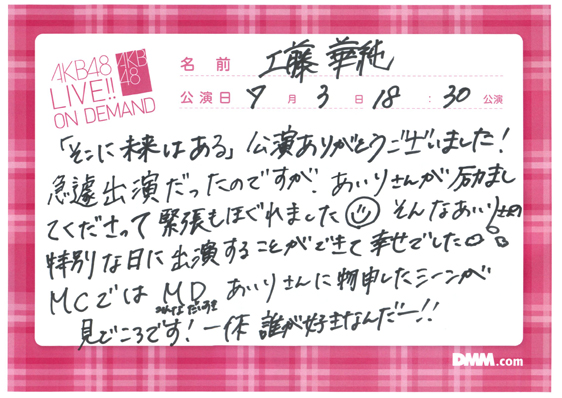 AKB48
LIVE!!
ON DEMAND
AKB
48
名前 工藤 華純
公演日 7月3日 18:30 公演
「そこに未来はある」公演ありがとうございました!
急遽出演だったのですが、あいりさんが励まし
てくださって緊張もほぐれました そんなあいりさんの
特別な日に出演することができて幸せでした
MCでは MD あいりさんに物申したシーンが
みんなだいすき
見どころです!一体 誰が好きなんだー!!
DMM.com